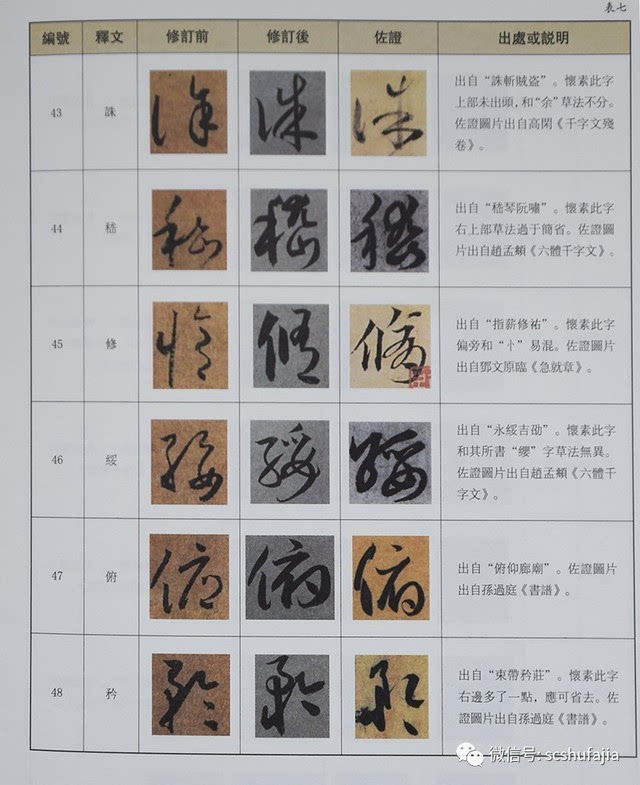 表七
編號 釋文 修訂前 修訂後 佐證 出處或説明
43 誅
出自“誅斬賊盗”。懷素此字
上部未出頭，和“余”草法不分。
佐證圖片出自高閑《千字文殘
卷》。
44 嵇
出自“嵇琴阮嘯”。懷素此字
右上部草法過于簡省。佐證圖
片出自趙孟頫《六體千字文》。
45 修
出自“指薪修祐”。懷素此字
偏旁和“忄”易混。佐證圖片
出自鄧文原臨《急就章》。
46 綏
出自“永綏吉劭”。懷素此字
和其所書“纓”字草法無異。
佐證圖片出自趙孟頫《六體千
字文》。
47 俯
出自“俯仰廊廟”。佐證圖片
出自孫過庭《書譜》。
48 矜
出自“束帶矜莊”。懷素此字
右邊多了一點，應可省去。佐
證圖片出自孫過庭《書譜》。
微信号: scshufajia